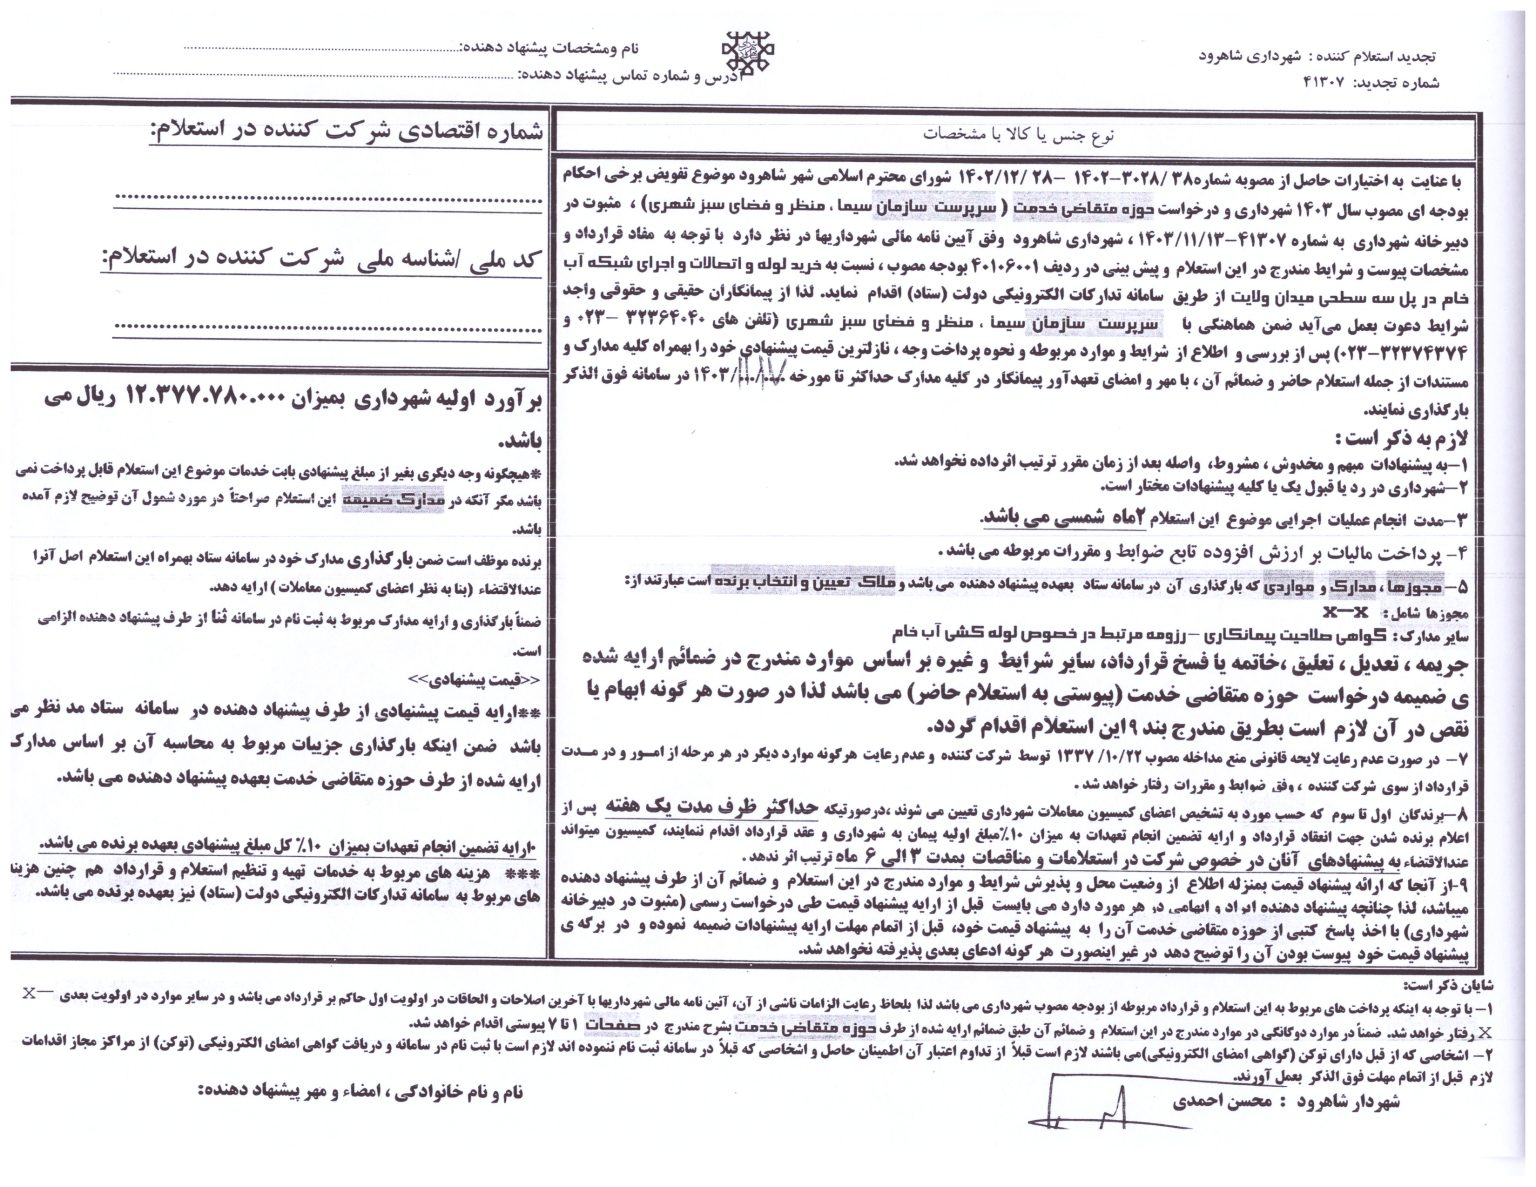 تجدید استعلام کننده : شهرداری شاهرود
شماره تجدید: ۴۱۳۰۷
نام ومشخصات پیشنهاد دهنده:
آدرس و شماره تماس پیشنهاد دهنده:
نوع جنس یا کالا با مشخصات
با عنایت به اختیارات حاصل از مصوبه شماره۳۸ /۳۰۲۸-۱۴۰۲ -۲۸ /۱۴۰۲/۱۲ شورای محترم اسلامی شهر شاهرود موضوع تفویض برخی احکام
بودجه ای مصوب سال ۱۴۰۳ شهرداری و درخواست حوزه متقاضی خدمت ( سرپرست سازمان سیما ، منظر و فضای سبز شهری) ، مثبوت در
دبیرخانه شهرداری به شماره ۴۱۳۰۷-۱۴۰۳/۱۱/۱۳ ، شهرداری شاهرود وفق آیین نامه مالی شهرداریها در نظر دارد با توجه به مفاد قرارداد و
مشخصات پیوست و شرایط مندرج در این استعلام و پیش بینی در ردیف ۴۰۱۰۶۰۰۱ بودجه مصوب ، نسبت به خرید لوله و اتصالات و اجرای شبکه آب
خام در پل سه سطحی میدان ولایت از طریق سامانه تدارکات الکترونیکی دولت (ستاد) اقدام نماید. لذا از پیمانکاران حقیقی و حقوقی واجد
شرایط دعوت بعمل می‌آید ضمن هماهنگی با سرپرست سازمان سیما ، منظر و فضای سبز شهری (تلفن های ۳۲۳۶۴۰۴۰ -۰۲۳ و
۳۲۳۷۴۳۷۴-۰۲۳) پس از بررسی و اطلاع از شرایط و موارد مربوطه و نحوه پرداخت وجه ، نازلترین قیمت پیشنهادی خود را بهمراه کلیه مدارک و
مستندات از جمله استعلام حاضر و ضمائم آن ، با مهر و امضای تعهدآور پیمانکار در کلیه مدارک حداکثر تا مورخه ۱۷/۱۱/۱۴۰۳ در سامانه فوق الذکر
بارگذاری نمایند.
لازم به ذکر است :
۱-به پیشنهادات مبهم و مخدوش ، مشروط، واصله بعد از زمان مقرر ترتیب اثرداده نخواهد شد.
۲-شهرداری در رد یا قبول یک یا کلیه پیشنهادات مختار است.
۳-مدت انجام عملیات اجرایی موضوع این استعلام ۲ماه شمسی می باشد.
۴- پرداخت مالیات بر ارزش افزوده تابع ضوابط و مقررات مربوطه می باشد .
۵-مجوزها ، مدارک و مواردی که بارگذاری آن در سامانه ستاد بعهده پیشنهاد دهنده می باشد و ملاک تعیین و انتخاب برنده است عبارتند از:
مجوزها شامل : X-X
سایر مدارک : گواهی صلاحیت پیمانکاری -رزومه مرتبط در خصوص لوله کشی آب خام
جریمه ، تعدیل ، تعلیق ،خاتمه یا فسخ قرارداد، سایر شرایط و غیره بر اساس موارد مندرج در ضمائم ارایه شده
ی ضمیمه درخواست حوزه متقاضی خدمت (پیوستی به استعلام حاضر) می باشد لذا در صورت هر گونه ابهام یا
نقص در آن لازم است بطریق مندرج بند ۹این استعلام اقدام گردد.
۷- در صورت عدم رعایت لایحه قانونی منع مداخله مصوب ۱۳۳۷/۱۰/۲۲ توسط شرکت کننده و عدم رعایت هرگونه موارد دیگر در هر مرحله از امـور و در مـدت
قرارداد از سوی شرکت کننده ، وفق ضوابط و مقررات رفتار خواهد شد .
۸-برندگان اول تا سوم که حسب مورد به تشخیص اعضای کمیسیون معاملات شهرداری تعیین می شوند ،درصورتیکه حداکثر ظرف مدت یک هفته پس از
اعلام برنده شدن جهت انعقاد قرارداد و ارایه تضمین انجام تعهدات به میزان ۱۰٪مبلغ اولیه پیمان به شهرداری و عقد قرارداد اقدام ننمایند، کمیسیون میتواند
عندالاقتضاء به پیشنهادهای آنان در خصوص شرکت در استعلامات و مناقصات بمدت ۳ الی ۶ ماه ترتیب اثر ندهد .
۹-از آنجا که ارائه پیشنهاد قیمت بمنزله اطلاع از وضعیت محل و پذیرش شرایط و موارد مندرج در این استعلام و ضمائم آن از طرف پیشنهاد دهنده
میباشد، لذا چنانچه پیشنهاد دهنده ایراد و ابهامی در هر مورد دارد می بایست قبل از ارایه پیشنهاد قیمت طی درخواست رسمی (مثبوت در دبیرخانه
شهرداری) با اخذ پاسخ کتبی از حوزه متقاضی خدمت آن را به پیشنهاد قیمت خود، قبل از اتمام مهلت ارایه پیشنهادات ضمیمه نموده و در برگه ی
پیشنهاد قیمت خود پیوست بودن آن را توضیح دهد در غیر اینصورت هر گونه ادعای بعدی پذیرفته نخواهد شد.
شماره اقتصادی شرکت کننده در استعلام:
کد ملی /شناسه ملی شرکت کننده در استعلام:
برآورد اولیه شهرداری بمیزان ۱۲.۳۷۷.۷۸۰.۰۰۰ ریال می
باشد.
*هیچگونه وجه دیگری بغیر از مبلغ پیشنهادی بابت خدمات موضوع این استعلام قابل پرداخت نمی
باشد مگر آنکه در مدارک ضمیمه این استعلام صراحتاً در مورد شمول آن توضیح لازم آمده
باشد.
برنده موظف است ضمن بارگذاری مدارک خود در سامانه ستاد بهمراه این استعلام اصل آنرا
عندالاقتضاء (بنا به نظر اعضای کمیسیون معاملات ) ارایه دهد.
ضمناً بارگذاری و ارایه مدارک مربوط به ثبت نام در سامانه ثنا از طرف پیشنهاد دهنده الزامی
است.
<<قیمت پیشنهادی>>
**ارایه قیمت پیشنهادی از طرف پیشنهاد دهنده در سامانه ستاد مد نظر می
باشد ضمن اینکه بارگذاری جزییات مربوط به محاسبه آن بر اساس مدارک
ارایه شده از طرف حوزه متقاضی خدمت بعهده پیشنهاد دهنده می باشد.
•ارایه تضمین انجام تعهدات بمیزان ۱۰٪ کل مبلغ پیشنهادی بعهده برنده می باشد.
*** هزینه های مربوط به خدمات تهیه و تنظیم استعلام و قرارداد هم چنین هزینه
های مربوط به سامانه تدارکات الکترونیکی دولت (ستاد) نیز بعهده برنده می باشد.
شایان ذکر است:
۱- با توجه به اینکه پرداخت های مربوط به این استعلام و قرارداد مربوطه از بودجه مصوب شهرداری می باشد لذا بلحاظ رعایت الزامات ناشی از آن، آئین نامه مالی شهرداریها با آخرین اصلاحات و الحاقات در اولویت اول حاکم بر قرارداد می باشد و در سایر موارد در اولویت بعدی X-
X رفتار خواهد شد. ضمناً در موارد دوگانگی در موارد مندرج در این استعلام و ضمائم آن طبق ضمائم ارایه شده از طرف حوزه متقاضی خدمت بشرح مندرج در صفحات ۱ تا ۷ پیوستی اقدام خواهد شد.
۲- اشخاصی که از قبل دارای توکن (گواهی امضای الکترونیکی)می باشند لازم است قبلاً از تداوم اعتبار آن اطمینان حاصل و اشخاصی که قبلاً در سامانه ثبت نام ننموده اند لازم است با ثبت نام در سامانه و دریافت گواهی امضای الکترونیکی (توکن) از مراکز مجاز اقدامات
لازم قبل از اتمام مهلت فوق الذکر بعمل آورند.
شهردار شاهرود : محسن احمدی
نام و نام خانوادگی ، امضاء و مهر پیشنهاد دهنده: